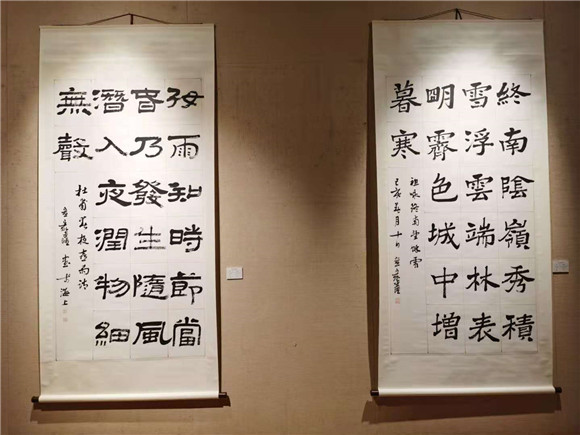 好雨知時節當
春乃發生隨風
潛入夜潤物細
無聲
杜甫春夜喜雨詩
書於海上
終南陰嶺秀積
雪浮雲端林表
明霽色城中增
暮寒
祖詠終南望餘雪
己亥春月十日